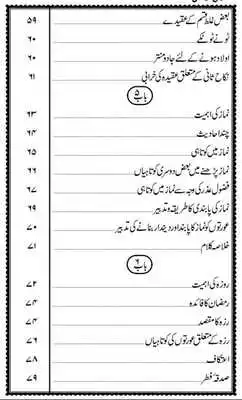 بعض غلط قسم کے عقیدے ۵۹
ٹونے ٹوٹکے ۶۰
اولاد ہونے کے لئے جادو منتر ۶۰
نکاح ثانی کے متعلق عقیدہ کی خرابی ۶۱
باب ۵
نماز کی اہمیت ۶۳
چند احادیث ۶۴
نماز میں کوتاہی ۶۵
نماز پڑھنے میں بعض دوسری کوتاہیاں ۶۶
فضول عذر کی وجہ سے نماز میں کوتاہی ۶۷
نماز کی پابندی کا طریقہ و تدبیر ۶۹
عورتوں کو نماز کا پابند اور دیندار بنانے کی تدبیر ۷۰
خلاصہ کلام ۷۱
باب ۶
روزہ کی اہمیت ۷۲
رمضان کا فائدہ ۷۴
رزہ کا مقصد ۷۴
رزہ کے متعلق عورتوں کی کوتاہیاں ۷۶
اعتکاف ۷۸
صدقۂ فطر ۷۹